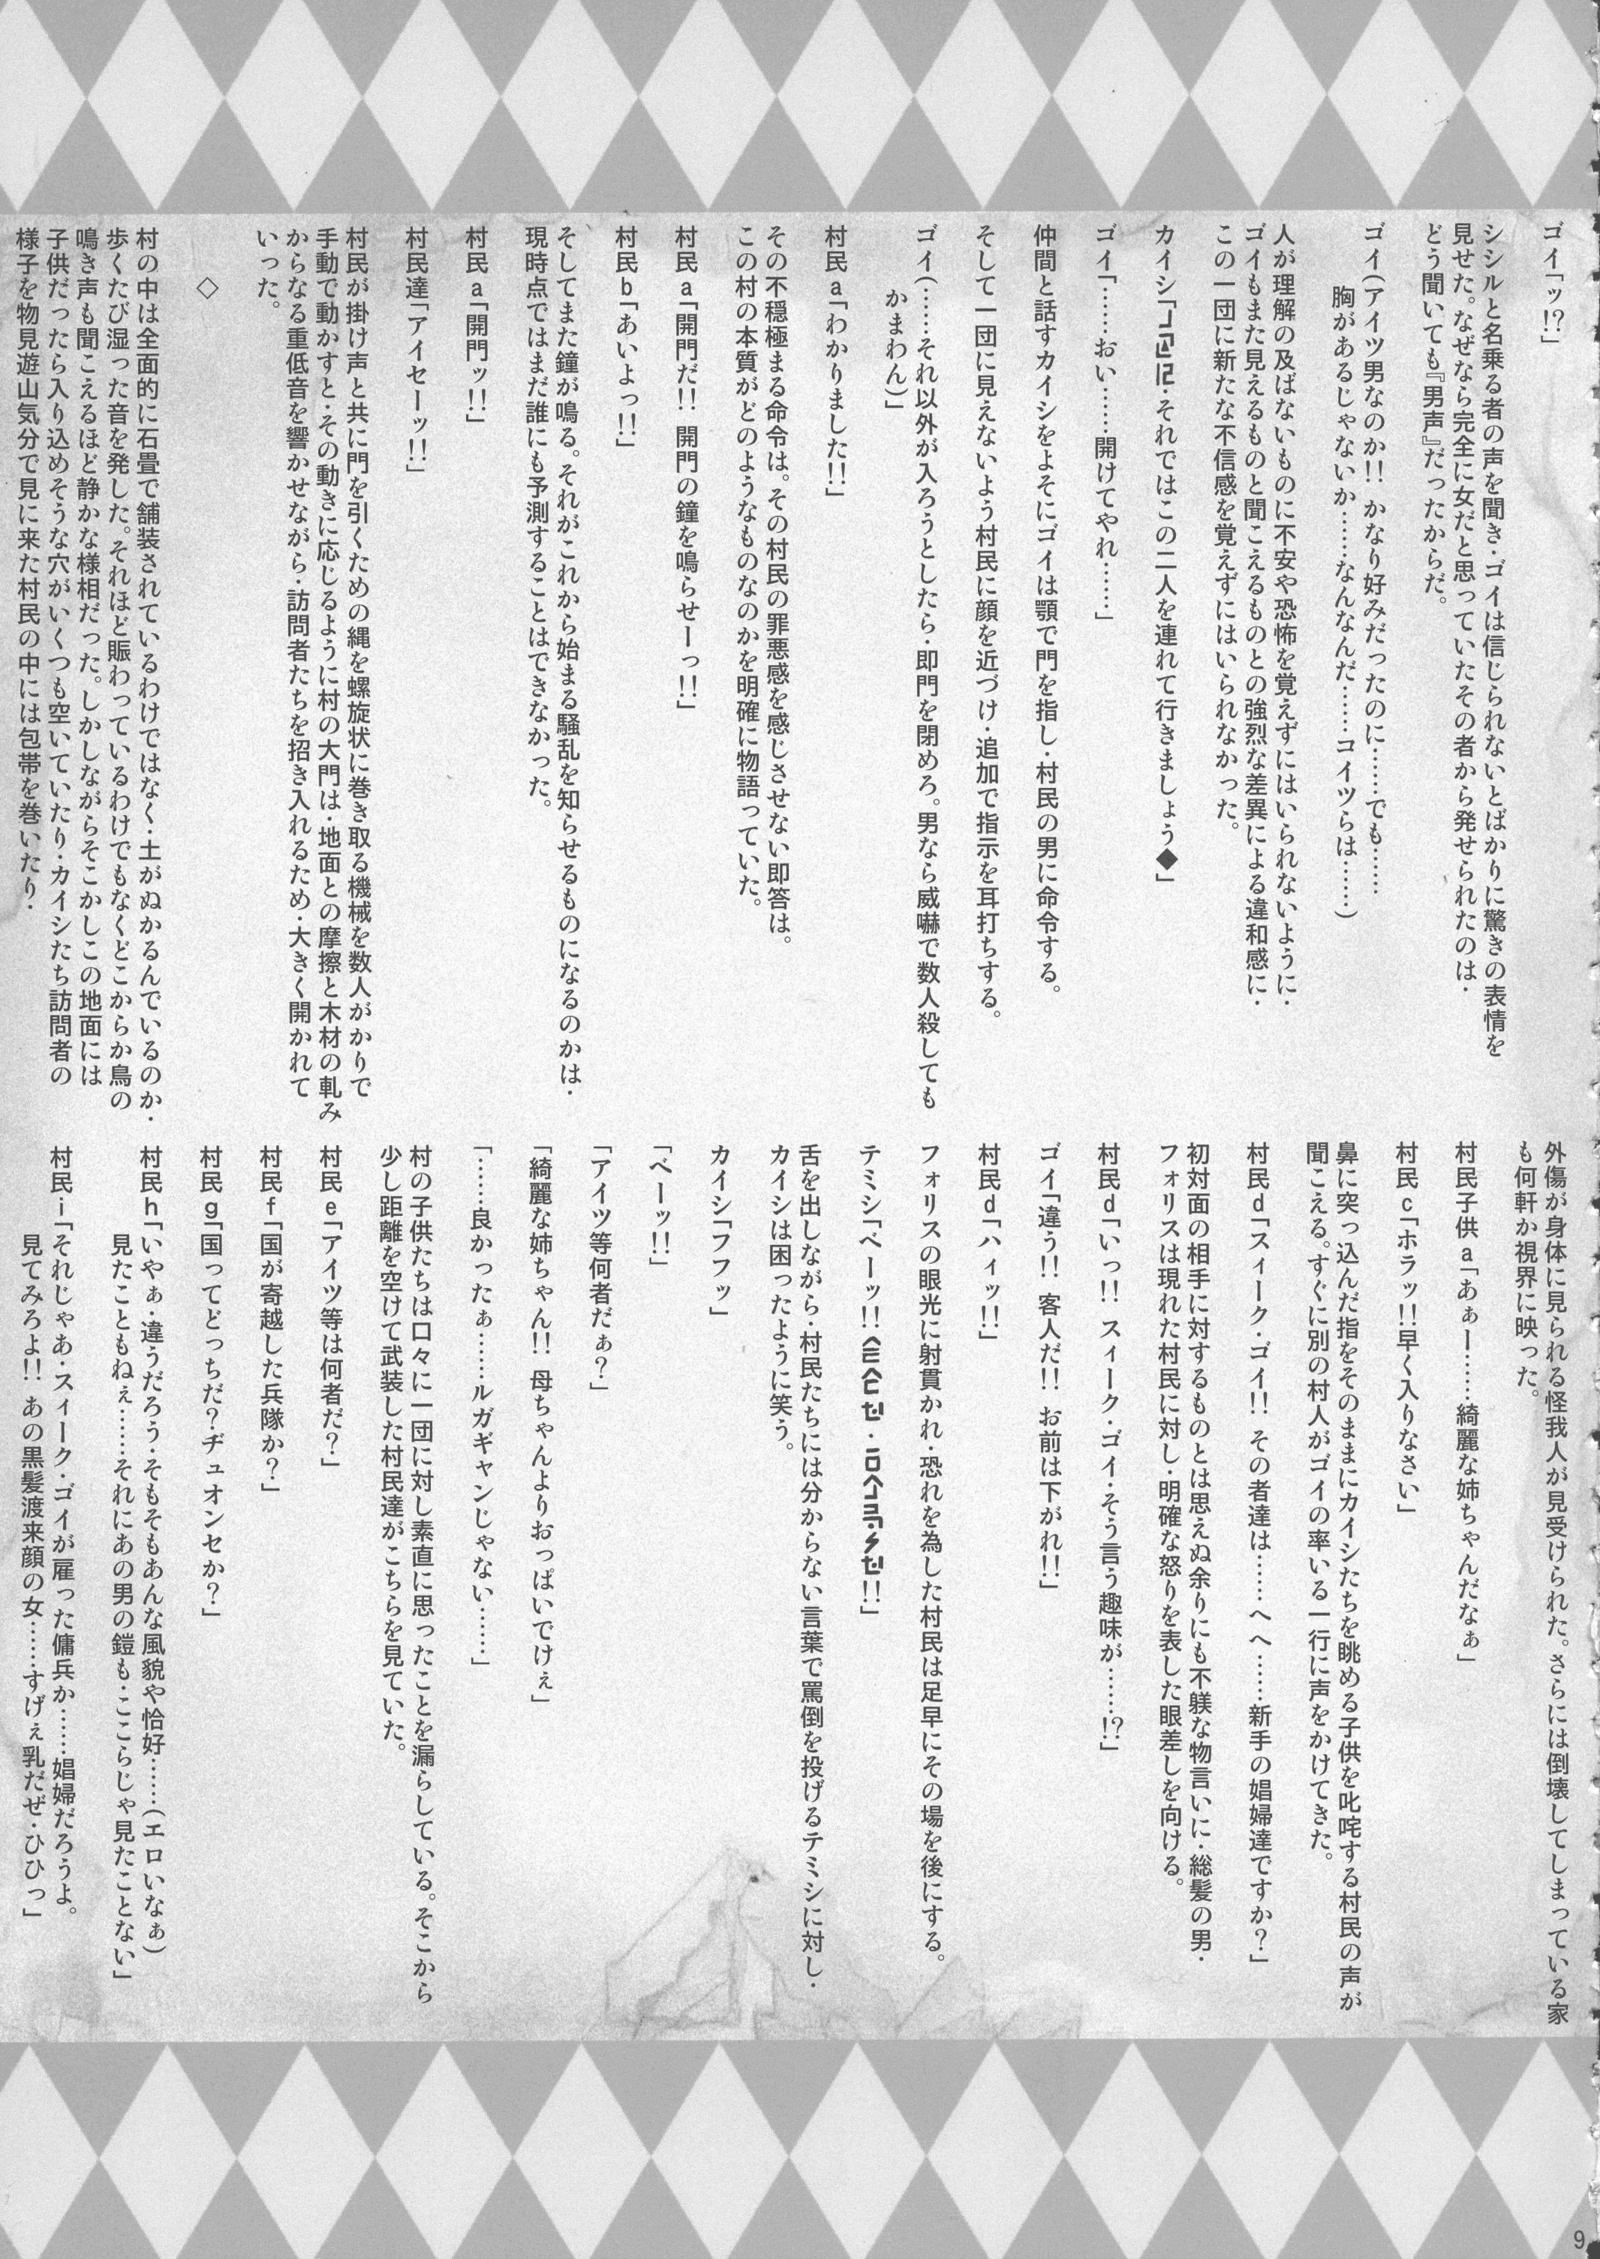 ゴイ「ッ!?」
シシルと名乗る者の声を聞き・ゴイは信じられないとばかりに驚きの表情を
見せた。なぜなら完全に女だと思っていたその者から発せられたのは・
どう聞いても『男声』だったからだ。
ゴイ(アイツ男なのか!! かなり好みだったのに……でも……
胸があるじゃないか……なんなんだ……コイツらは……)
人が理解の及ばないものに不安や恐怖を覚えずにはいられないように・
ゴイもまた見えるものと聞こえるものとの強烈な差異による違和感に・
この一団に新たな不信感を覚えずにはいられなかった。
カイシ「・それではこの二人を連れて行きましょう◆」
ゴイ「……おい……開けてやれ……」
仲間と話すカイシをよそにゴイは顎で門を指し・村民の男に命令する。
そして一団に見えないよう村民に顔を近づけ・追加で指示を耳打ちする。
ゴイ(……それ以外が入ろうとしたら・即門を閉めろ。男なら威嚇で数人殺しても
かまわん)」
村民a「わかりました!!」
その不穏極まる命令は。その村民の罪悪感を感じさせない即答は。
この村の本質がどのようなものなのかを明確に物語っていた。
村民a「開門だ!! 開門の鐘を鳴らせーっ!!」
村民b「あいよっ!!」
そしてまた鐘が鳴る。それがこれから始まる騒乱を知らせるものになるのかは・
現時点ではまだ誰にも予測することはできなかった。
村民a「開門ッ!!」
村民達「アイセーッ!!」
村民が掛け声と共に門を引くための縄を螺旋状に巻き取る機械を数人がかりで
手動で動かすと・その動きに応じるように村の大門は・地面との摩擦と木材の軋み
からなる重低音を響かせながら・訪問者たちを招き入れるため・大きく開かれて
いった。
◇
村の中は全面的に石畳で舗装されているわけではなく・土がぬかるんでいるのか・
歩くたび湿った音を発した。それほど賑わっているわけでもなくどこからか鳥の
鳴き声も聞こえるほど静かな様相だった。しかしながらそこかしこの地面には
子供だったら入り込めそうな穴がいくつも空いていたり・カイシたち訪問者の
様子を物見遊山気分で見に来た村民の中には包帯を巻いたり・
外傷が身体に見られる怪我人が見受けられた。さらには倒壊してしまっている家
も何軒か視界に映った。
村民子供a「あぁー……綺麗な姉ちゃんだなぁ」
村民c「ホラッ!!早く入りなさい」
鼻に突っ込んだ指をそのままにカイシたちを眺める子供を叱咤する村民の声が
聞こえる。すぐに別の村人がゴイの率いる一行に声をかけてきた。
村民d「スィーク・ゴイ!! その者達は……へへ……新手の娼婦達ですか?」
初対面の相手に対するものとは思えぬ余りにも不躾な物言いに・総髪の男・
フォリスは現れた村民に対し・明確な怒りを表した眼差しを向ける。
村民d「いっ!! スィーク・ゴイ・そう言う趣味が……!?」
ゴイ「違う!! 客人だ!! お前は下がれ!!」
村民d「ハィッ!!」
フォリスの眼光に射貫かれ・恐れを為した村民は足早にその場を後にする。
テミシ「ベーッ!! !!」
舌を出しながら・村民たちには分からない言葉で罵倒を投げるテミシに対し・
カイシは困ったように笑う。
カイシ「フフッ」
「ベーッ!!」
「アイツ等何者だぁ?」
「綺麗な姉ちゃん!! 母ちゃんよりおっぱいでけぇ」
「……良かったぁ……ルガギャンじゃない……」
村の子供たちは口々に一団に対し素直に思ったことを漏らしている。そこから
少し距離を空けて武装した村民達がこちらを見ていた。
村民e「アイツ等は何者だ?」
村民f「国が寄越した兵隊か?」
村民g「国ってどっちだ?ヂュオンセか?」
村民h「いやぁ・違うだろう・そもそもあんな風貌や恰好……(エロいなぁ)
見たこともねぇ……それにあの男の鎧も・ここらじゃ見たことない」
村民i「それじゃあ・スィーク・ゴイが雇った傭兵か……娼婦だろうよ。
見てみろよ!! あの黒髪渡来顔の女……すげぇ乳だぜ・ひひっ」
9